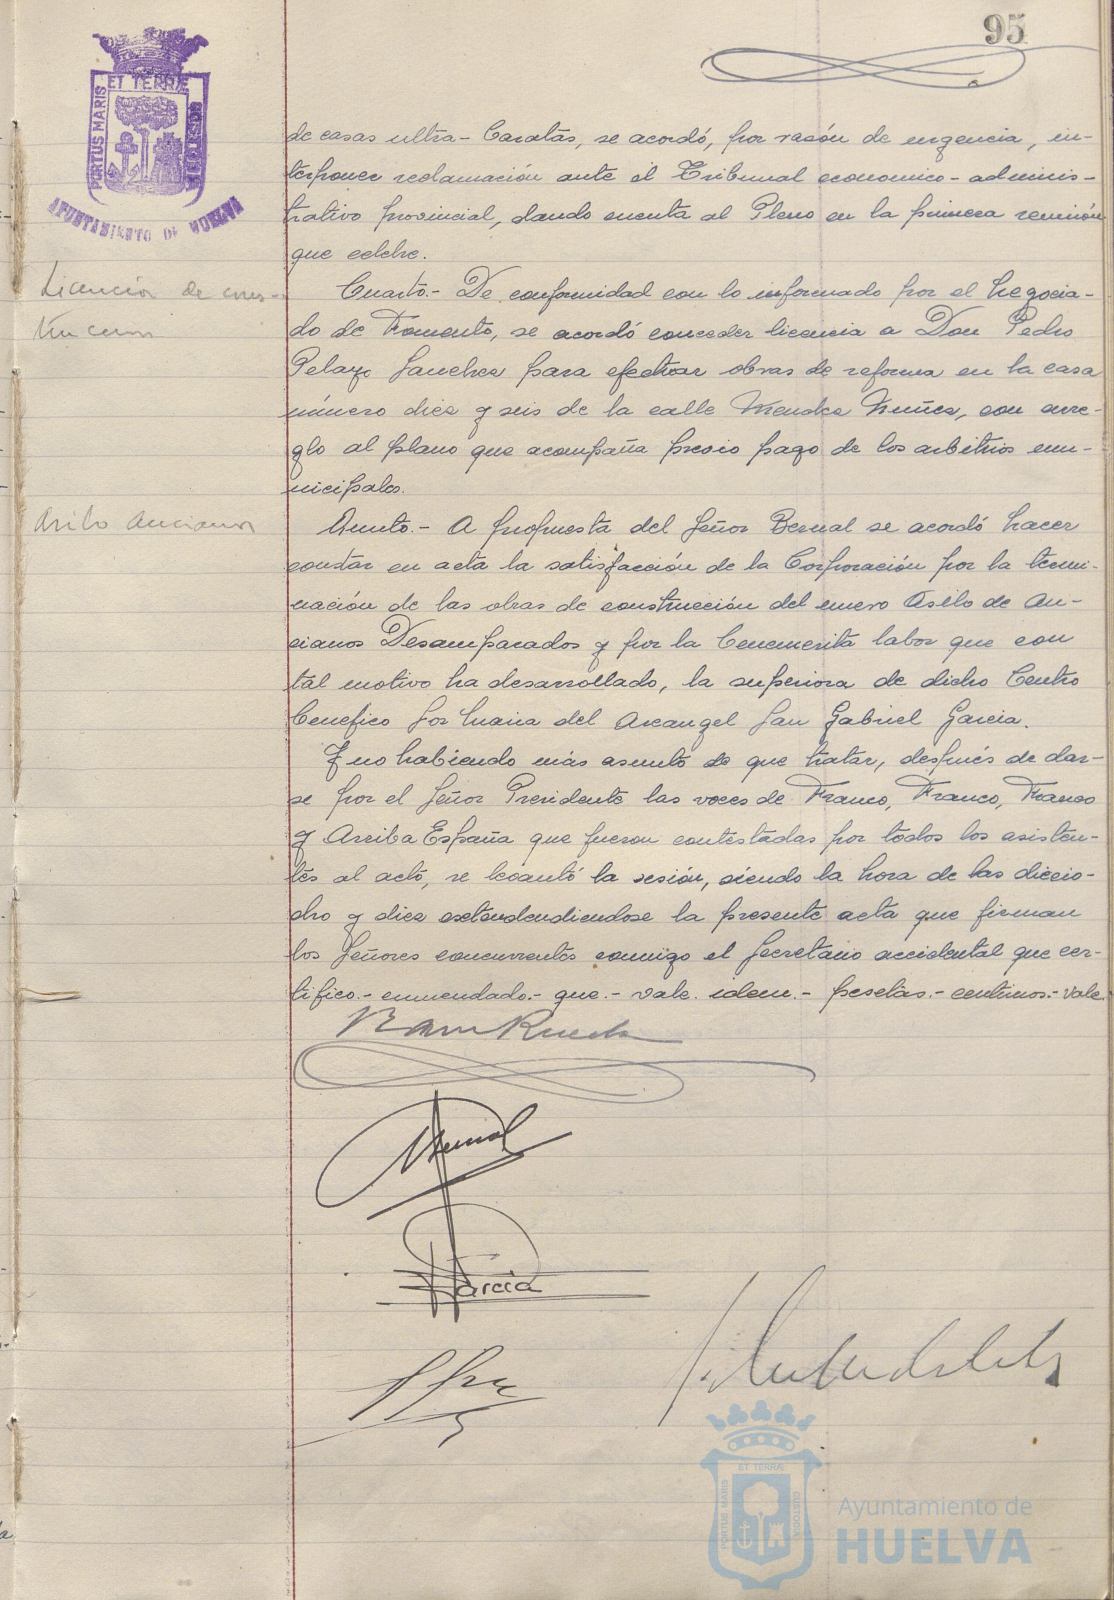 95
PORTUS MARIS ET TERRÆ CUSTODIA
AYUNTAMIENTO DE HUELVA
de casas ultra-baratas, se acordó, por rasón de urgencia, in-
terponer reclamación ante el Tribunal economico-adminis-
trativo provincial, dando cuenta al Pleno en la primera reunión
que celebre.
Licencia de cons-
truccion
Cuarto.- De conformidad con lo informado por el Negocia-
do de Fomento, se acordó conceder licencia a Don Pedro
Pelayo Sanchez para efectuar obras de reforma en la casa
número diez y seis de la calle Mendez Nuñez, con arre-
glo al plano que acompaña previo pago de los arbitrios mu-
nicipales.
Asilo Ancianos
Quinto.- A propuesta del Señor Bernal se acordó hacer
constar en acta la satisfacción de la Corporación por la termi-
nación de las obras de construcción del nuevo Asilo de An-
cianos Desamparados y por la benemerita labor que con
tal motivo ha desarrollado, la superiora de dicho Centro
benefico Sor Maria del Arcangel San Gabriel Garcia.
Y no habiendo más asunto de que tratar, después de dar-
se por el Señor Presidente las voces de Franco, Franco, Franco
y Arriba España que fueron contestadas por todos los asisten-
tes al acto, se levantó la sesión, siendo la hora de las diecio-
cho y diez extendendiendose la presente acta que firman
los Señores concurrentes conmigo el Secretario accidental que cer-
tifico.- enmendado.- que.- vale. idem.- pesetas.- centimos.- vale.
Bernal
Garcia
PORTUS MARIS ET TERRÆ CUSTODIA
Ayuntamiento de
HUELVA